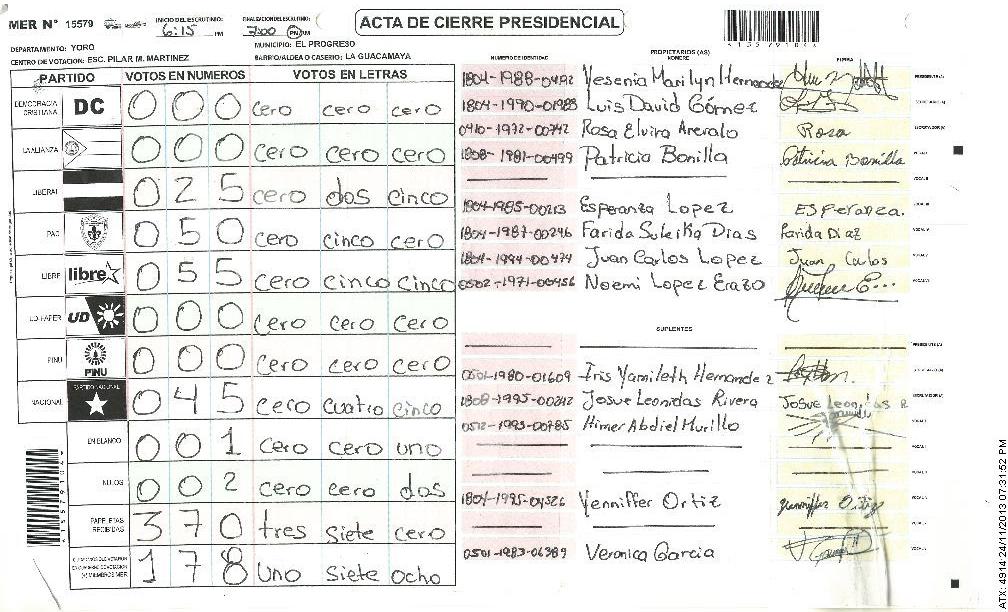 MER N° 15579
INICIO DEL ESCRUTINIO: 6:15 PM
FINALIZACION DEL ESCRUTINIO: 7:00 PM
ACTA DE CIERRE PRESIDENCIAL
DEPARTAMENTO: YORO
MUNICIPIO: EL PROGRESO
CENTRO DE VOTACION: ESC. PILAR M. MARTINEZ
BARRIO/ALDEA O CASERIO: LA GUACAMAYA
PARTIDO VOTOS EN NUMEROS VOTOS EN LETRAS
DEMOCRACIA CRISTIANA DC 0 0 0 cero cero cero
LA ALIANZA 0 0 0 cero cero cero
LIBERAL 0 2 5 cero dos cinco
PAC 0 5 0 cero cinco cero
LIBRE libre 0 5 5 cero cinco cinco
UD FAPER UD 0 0 0 cero cero cero
PINU PINU 0 0 0 cero cero cero
NACIONAL PARTIDO NACIONAL 0 4 5 cero cuatro cinco
EN BLANCO 0 0 1 cero cero uno
NULOS 0 0 2 cero cero dos
PAPELETAS RECIBIDAS 3 7 0 tres siete cero
1 7 8 uno siete ocho
NUMERO DE IDENTIDAD PROPIETARIOS (AS) NOMBRE FIRMA
1804-1988-0492 Yesenia Marilyn Hernandez
1804-1990-01983 Luis David Gómez
0410-1972-00742 Rosa Elvira Arevalo Rosa
1808-1981-00499 Patricia Bonilla Patricia Bonilla
1804-1985-00213 Esperanza Lopez Esperanza.
1804-1987-00246 Farida Suleika Dias Farida Diaz
1804-1994-00474 Juan Carlos Lopez Juan Carlos
0502-1971-00456 Noemi Lopez Erazo
SUPLENTES
0501-1980-01609 Iris Yamileth Hernandez
1808-1995-00242 Josue Leonidas Rivera Josue Leonidas R
0512-1993-00785 Himer Abdiel Murillo
1804-1995-04526 Yenniffer Ortiz Yenniffer Ortiz
0501-1983-06389 Veronica Garcia
ATX: 4914 24/11/2013 07:31:52 PM